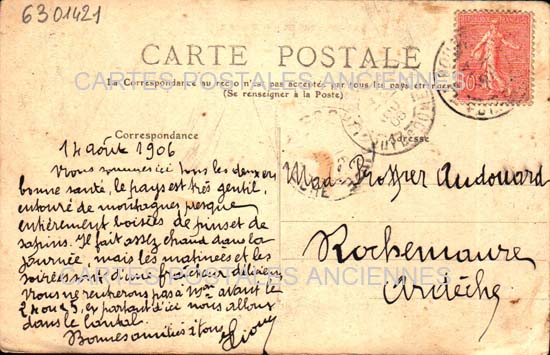 6301421
CARTE POSTALE
CARTES POSTALES ANCIENNES
La Correspondance au recto n'est pas acceptée par tous les pays étrangers
(Se renseigner à la Poste)
Correspondance
Adresse
14 août 1906
Nous sommes ici tous les deux en
bonne santé, le pays est très gentil,
entouré de montagnes presque
entièrement boisées de pins et de
sapins. Il fait assez chaud dans la
journée, mais les matinées et les
soirées sont d'une fraîcheur délicieuse
Nous ne rentrerons pas à avant le
24 ou 25, en partant d'ici nous allons
dans le Cantal.
Bonnes amitiés à tous
Mad Prosper Audouard
Rochemaure
Ardèche
CARTES POSTALES ANCIENNES